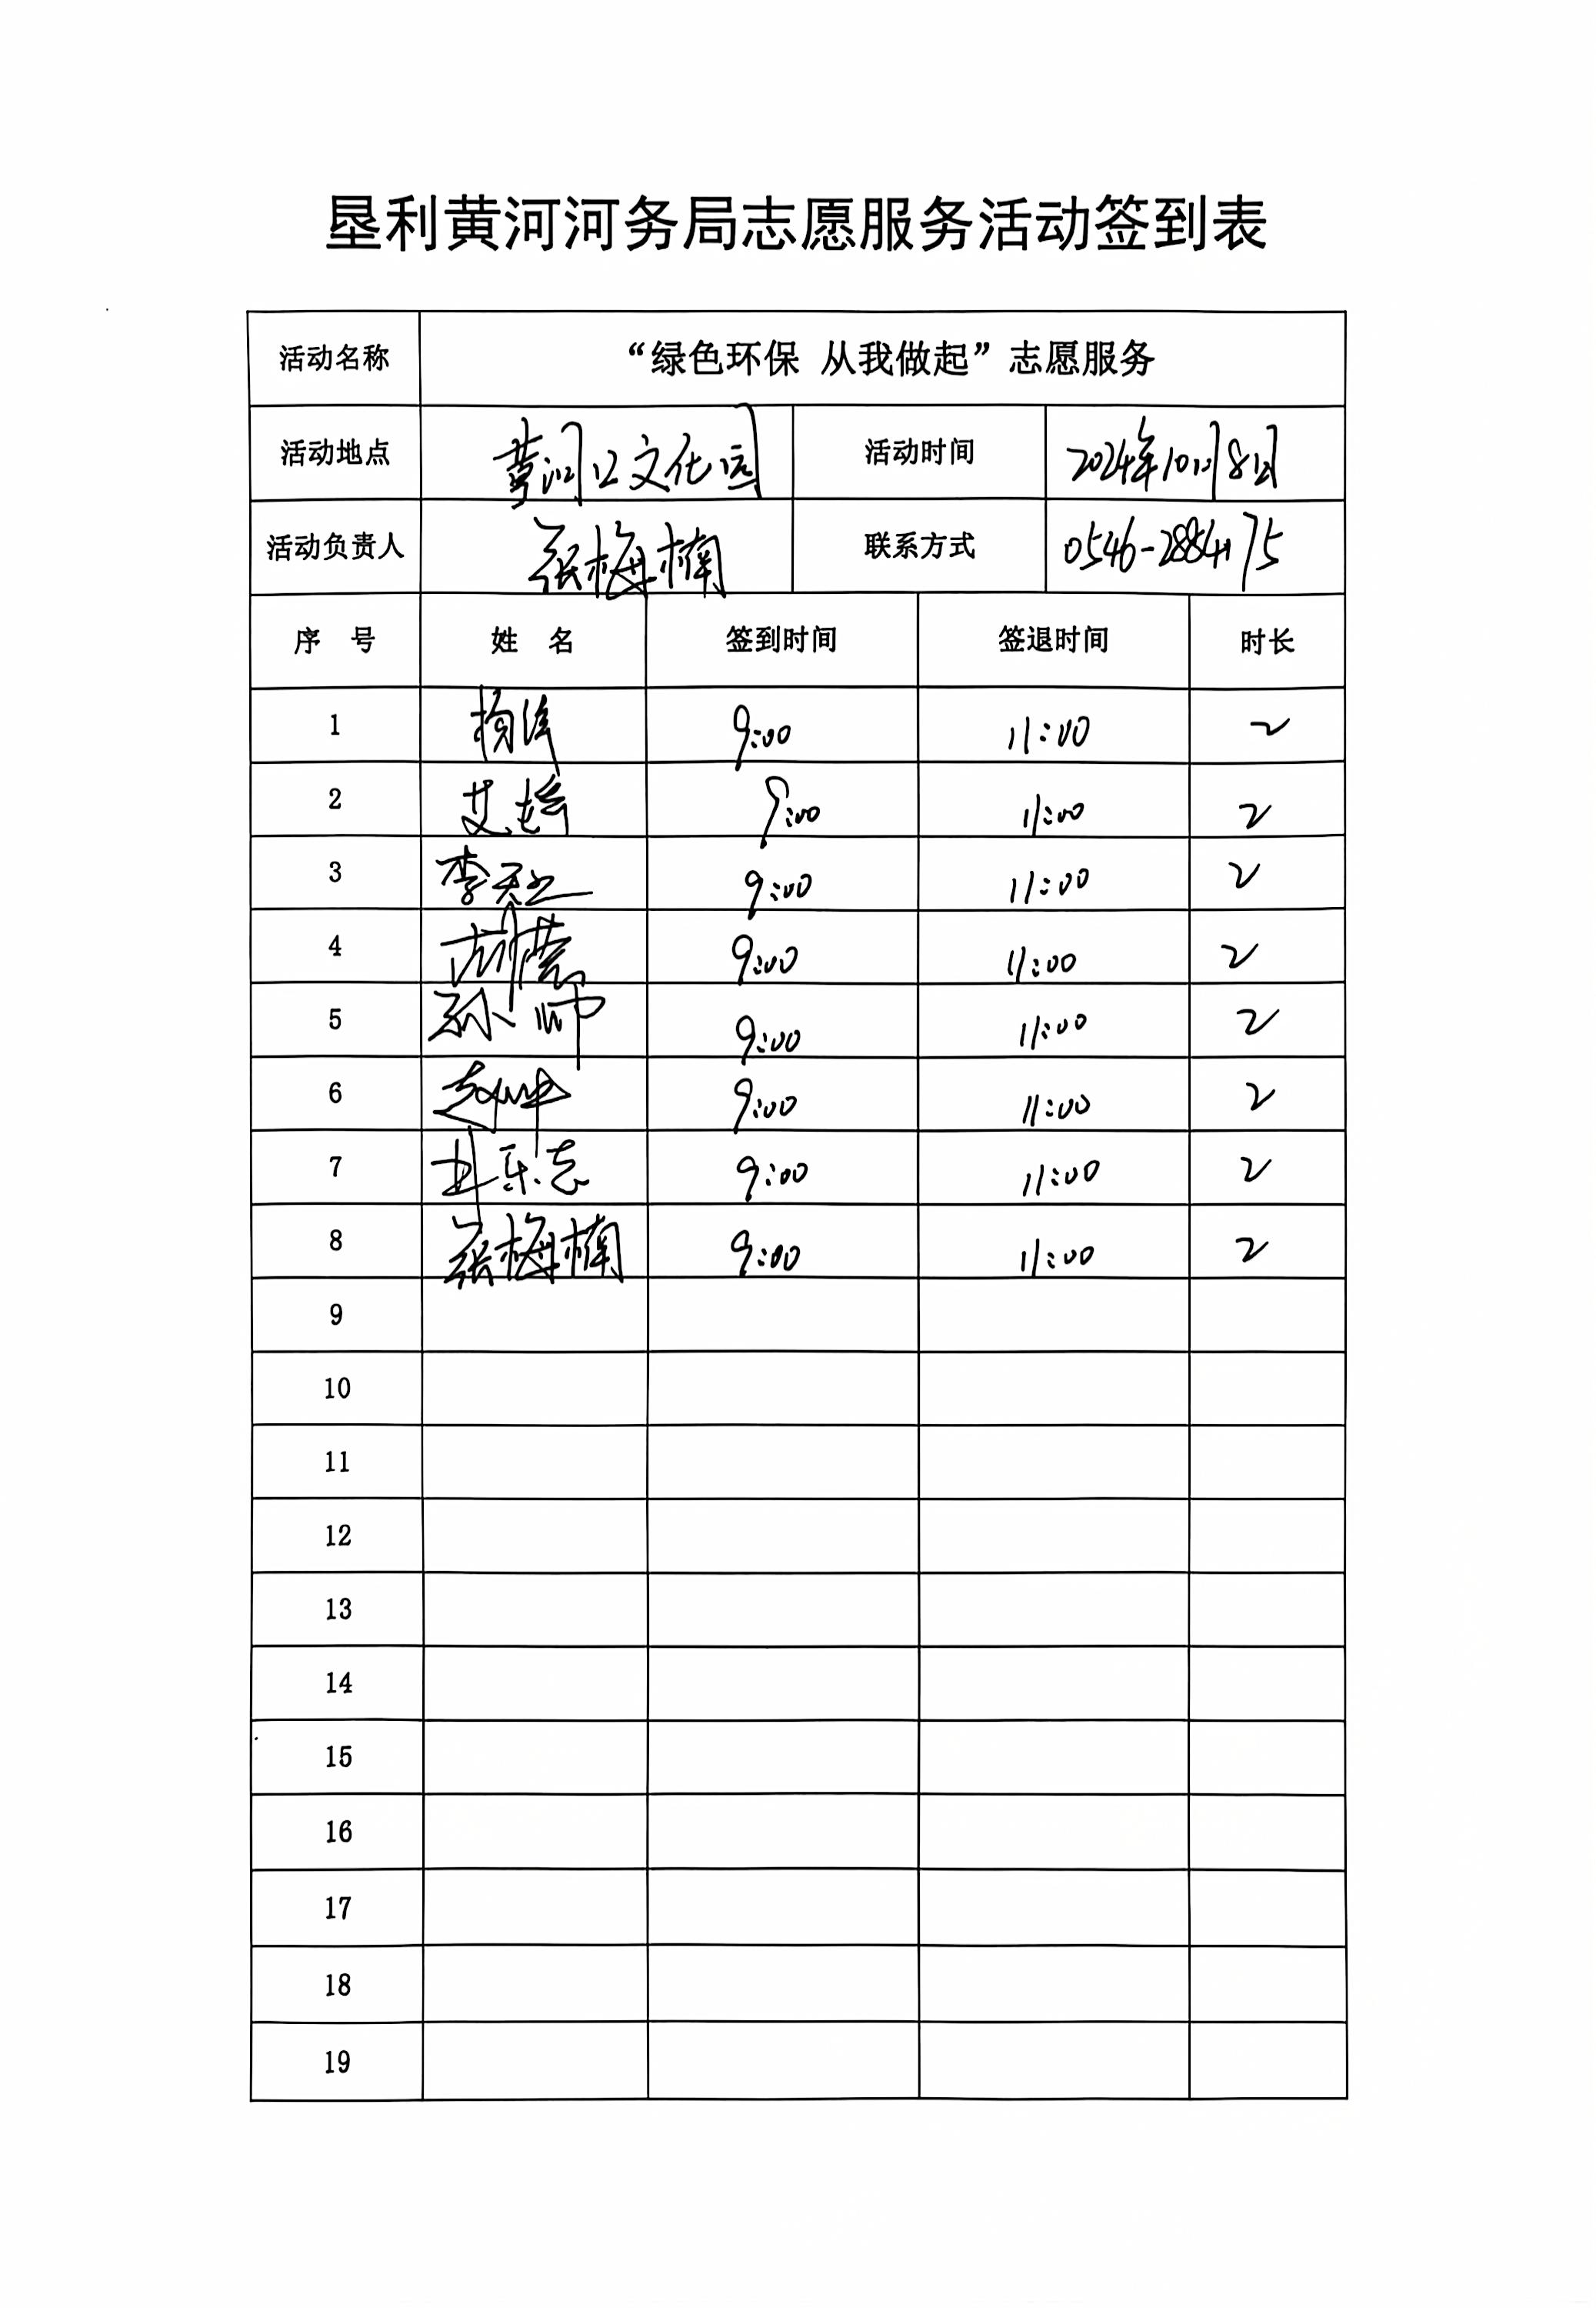 垦利黄河河务局志愿服务活动签到表
活动名称 “绿色环保 从我做起”志愿服务
活动地点 黄河口文化园 活动时间 2024年10月8日
活动负责人 张梅楠 联系方式 0546-2884175
序 号 姓 名 签到时间 签退时间 时长
1 9:00 11:00 2
2 艾瑶 9:00 11:00 2
3 李天 9:00 11:00 2
4 9:00 11:00 2
5 孙帅 9:00 11:00 2
6 赵 9:00 11:00 2
7 乐志 9:00 11:00 2
8 张梅楠 9:00 11:00 2
9
10
11
12
13
14
15
16
17
18
19